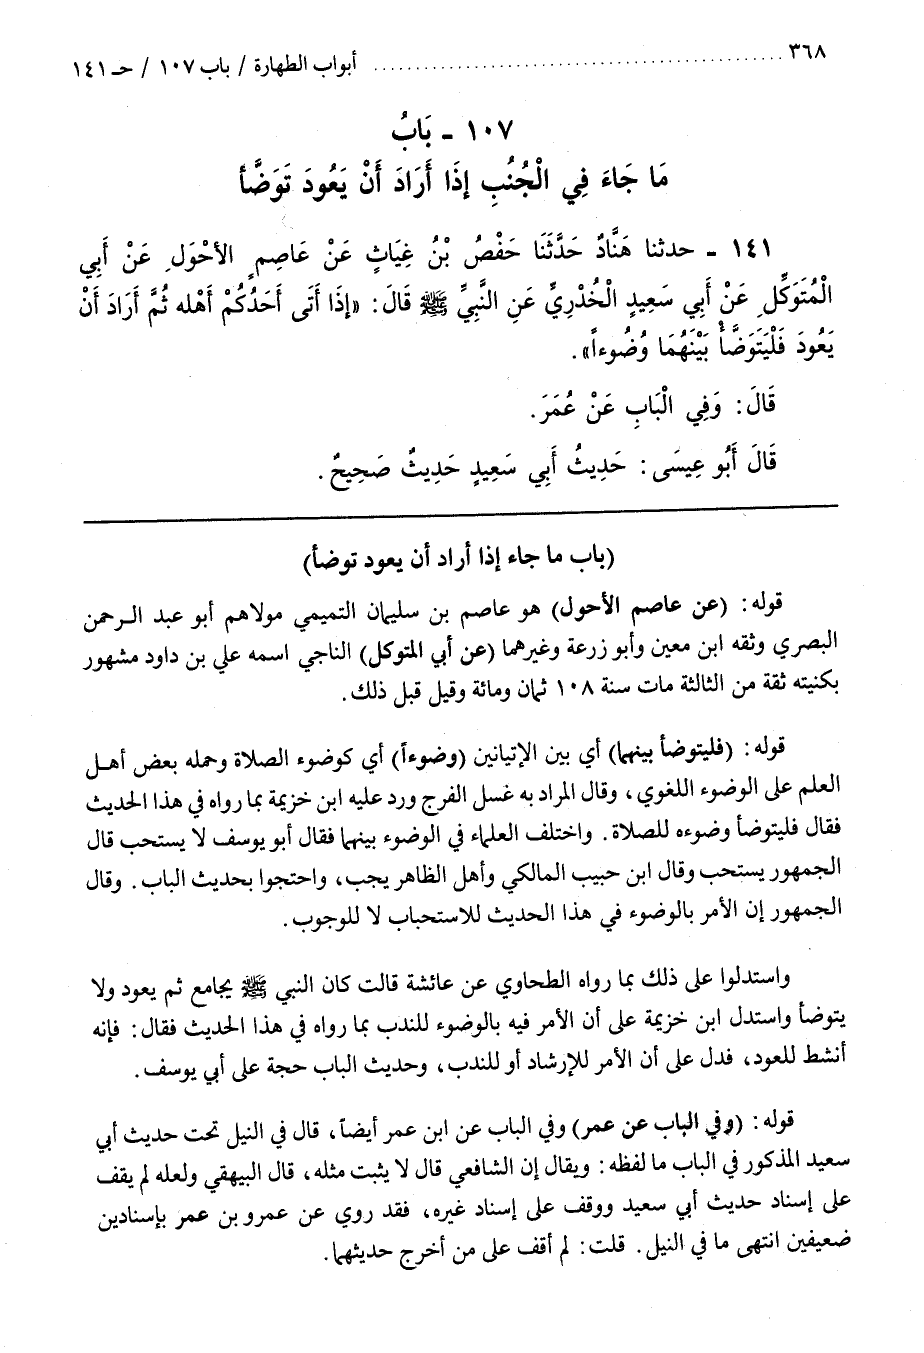 ٣٦٨ ........................................ أبواب الطهارة / باب ١٠٧ / حـ ١٤١
١٠٧ - بَابُ
مَا جَاءَ فِي الْجُنُبِ إِذَا أَرَادَ أَنْ يَعُودَ تَوَضَّأَ
١٤١ - حدثنا هَنَّادٌ حَدَّثَنَا حَفْصُ بْنُ غِيَاثٍ عَنْ عَاصِمٍ الأَحْوَلِ عَنْ أَبِي
الْمُتَوَكِّلِ عَنْ أَبِي سَعِيدٍ الْخُدْرِيِّ عَنِ النَّبِيِّ ﷺ قَالَ: «إِذَا أَتَى أَحَدُكُمْ أَهْلَه ثُمَّ أَرَادَ أَنْ
يَعُودَ فَلْيَتَوَضَّأْ بَيْنَهُمَا وُضُوءاً».
قَالَ: وَفِي الْبَابِ عَنْ عُمَرَ.
قَالَ أَبُو عِيسَى: حَدِيثُ أَبِي سَعِيدٍ حَدِيثٌ صَحِيحٌ.
(باب ما جاء إذا أراد أن يعود توضأ)
قوله: (عن عاصم الأحول) هو عاصم بن سليمان التميمي مولاهم أبو عبد الرحمن
البصري وثقه ابن معين وأبو زرعة وغيرهما (عن أبي المتوكل) الناجي اسمه علي بن داود مشهور
بكنيته ثقة من الثالثة مات سنة ١٠٨ ثمان ومائة وقيل قبل ذلك.
قوله: (فليتوضأ بينهما) أي بين الإتيانين (وضوءاً) أي كوضوء الصلاة وحمله بعض أهل
العلم على الوضوء اللغوي، وقال المراد به غسل الفرج ورد عليه ابن خزيمة بما رواه في هذا الحديث
فقال فليتوضأ وضوءه للصلاة. واختلف العلماء في الوضوء بينهما فقال أبو يوسف لا يستحب قال
الجمهور يستحب وقال ابن حبيب المالكي وأهل الظاهر يجب، واحتجوا بحديث الباب. وقال
الجمهور إن الأمر بالوضوء في هذا الحديث للاستحباب لا للوجوب.
واستدلوا على ذلك بما رواه الطحاوي عن عائشة قالت كان النبي ﷺ يجامع ثم يعود ولا
يتوضأ واستدل ابن خزيمة على أن الأمر فيه بالوضوء للندب بما رواه في هذا الحديث فقال: فإنه
أنشط للعود، فدل على أن الأمر للإرشاد أو للندب، وحديث الباب حجة على أبي يوسف.
قوله: (وفي الباب عن عمر) وفي الباب عن ابن عمر أيضاً، قال في النيل تحت حديث أبي
سعيد المذكور في الباب ما لفظه: ويقال إن الشافعي قال لا يثبت مثله، قال البيهقي ولعله لم يقف
على إسناد حديث أبي سعيد ووقف على إسناد غيره، فقد روي عن عمرو بن عمر بإسنادين
ضعيفين انتهى ما في النيل. قلت: لم أقف على من أخرج حديثهما.